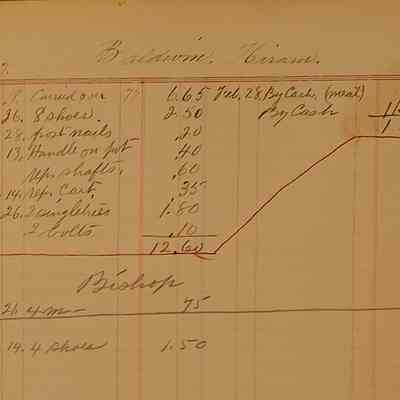 Baldwin. Hiram.
7.
8. Carried over 77 6.65 Feb. 28. By Cash. (meat)
26. 8 shoes. 2.50 By Cash 11
28. frost nails .20 1
13. Handle on pot .40
rep. shafts. .60
14. rep. Cart. 35
26. 2 singletrees 1.80
2 bolts. .10
12.60
Bishop
26. 4 m— 75
14. 4 shoes 1.50